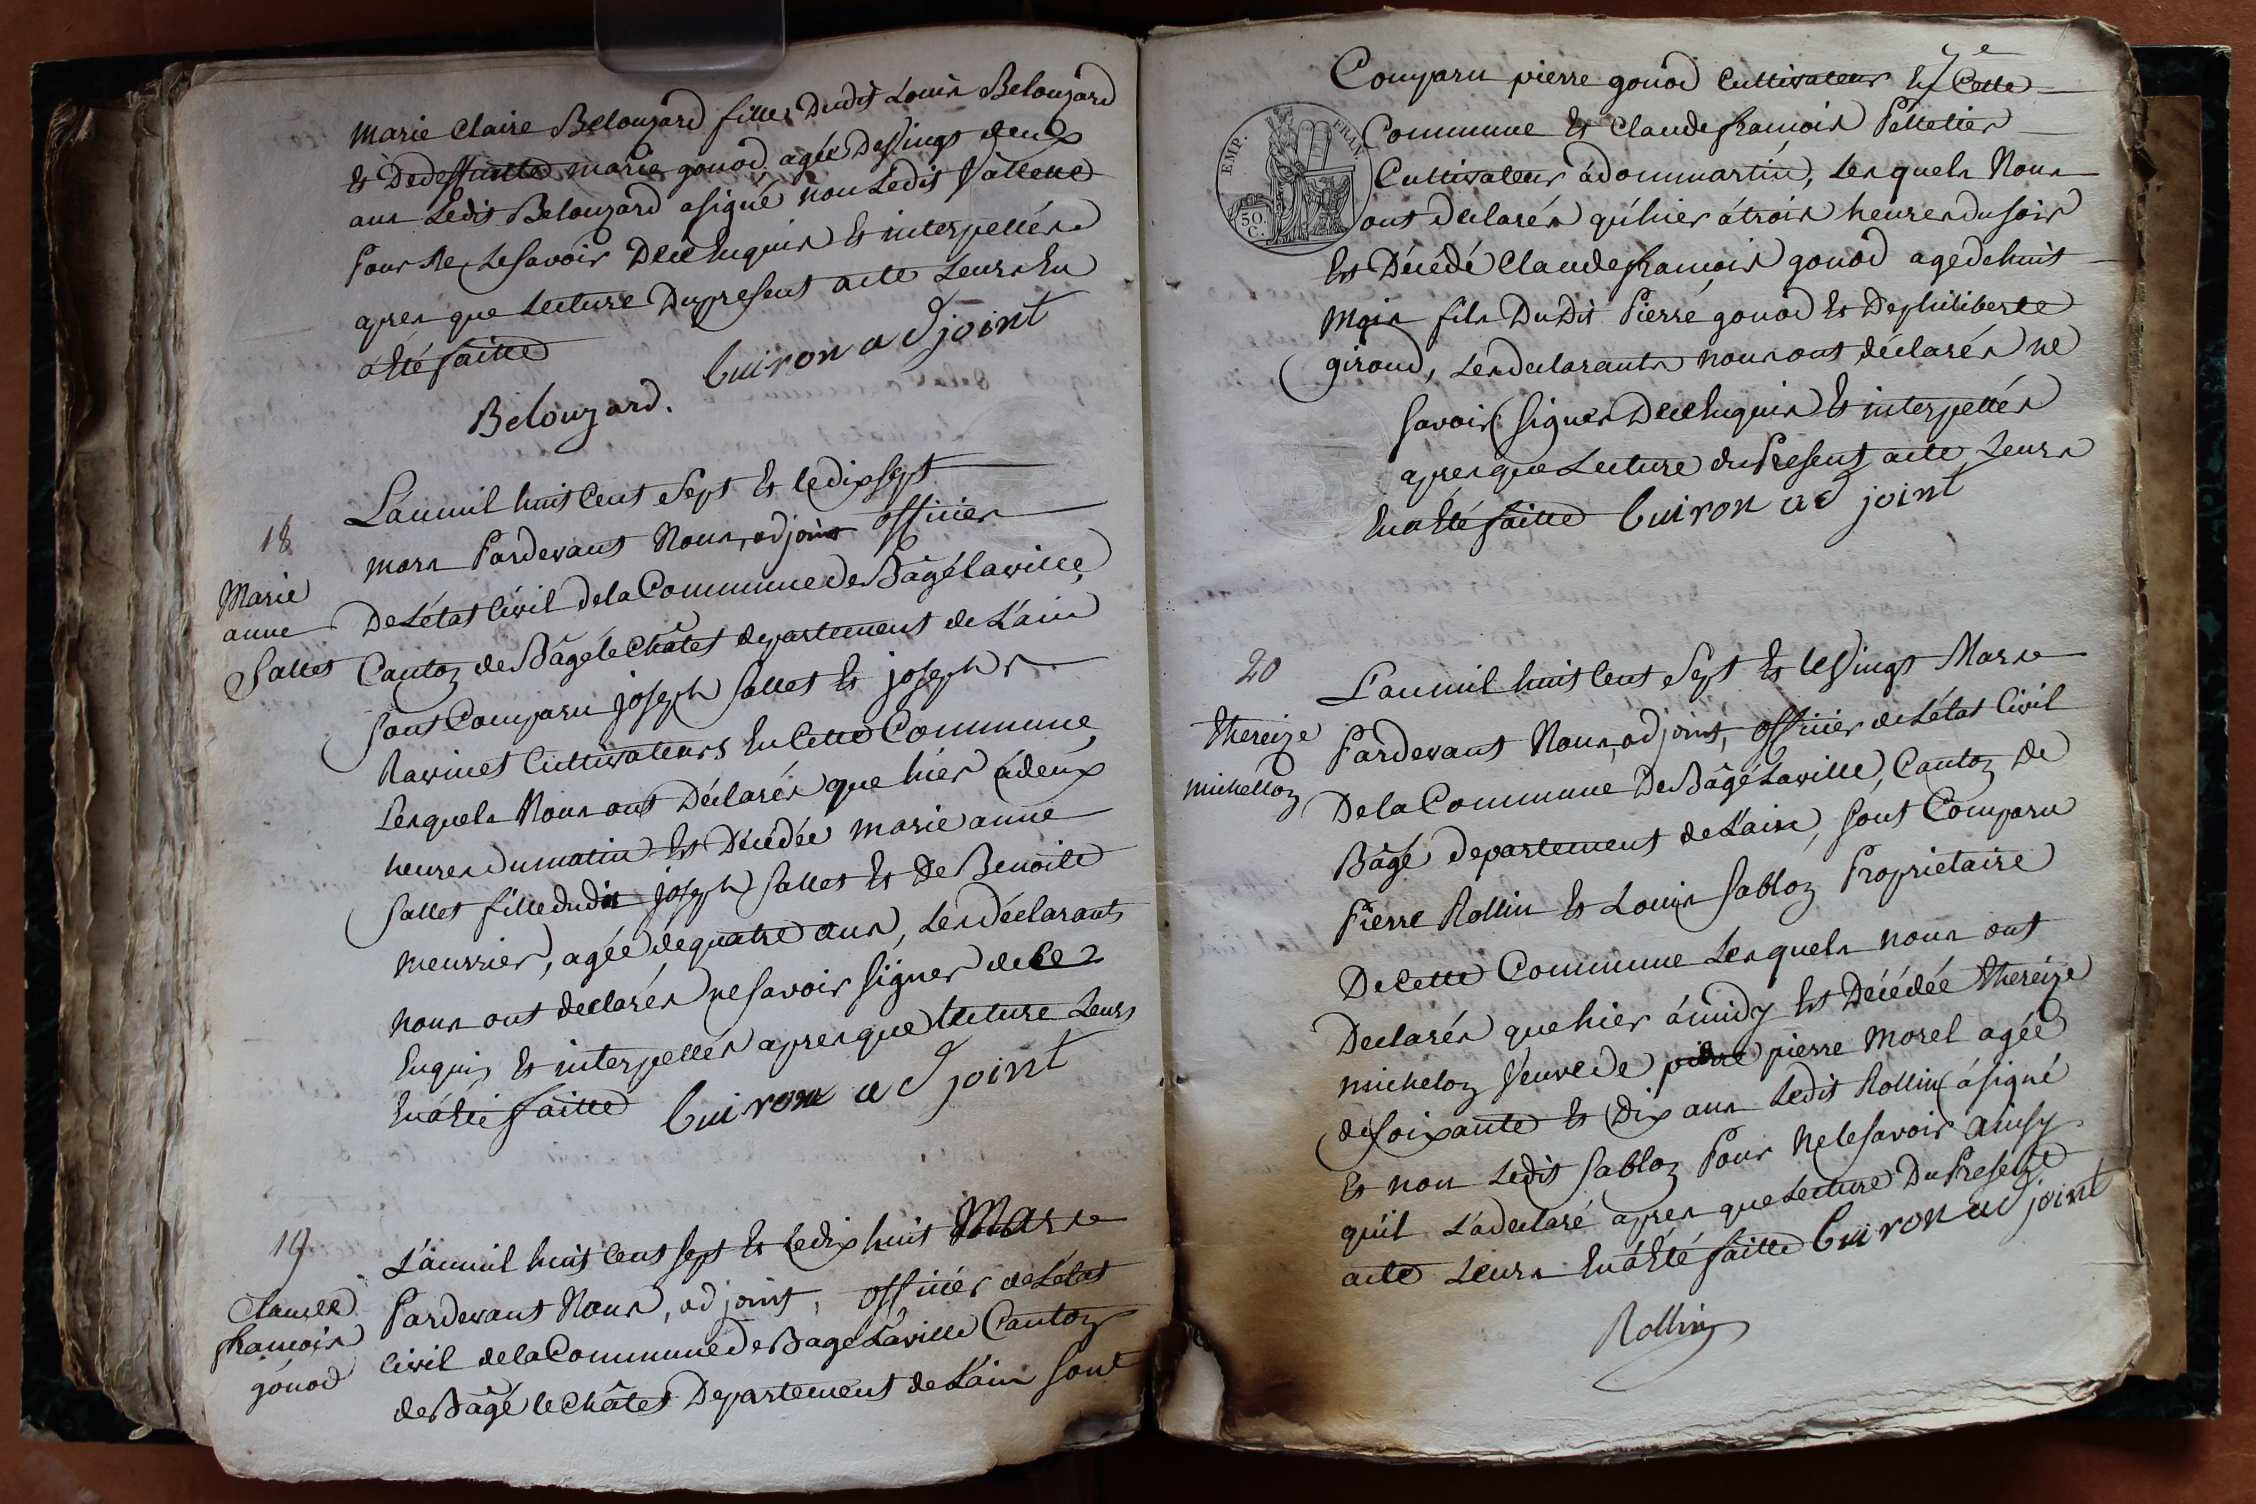 Marie Claire Belouzard fille Dudit Louis Belouzard
et Dedeffuntte marie gonod, agée DeVingt deux
ans Ledit Belouzard asigné non Ledit Vallette
Pour Ne Lesavoir DeceEnquis Et interpellés
apres que Lecture Dupresent acte Leurs En
á Eté faitte
Buiron adjoint
Belouzard.
18
Marie
anne
Sallet
L'anmil huit Cent Sept Et ledixsept
mars Pardevant Nous, adjoint officier
DeL'état Civil dela Commune de Bâgélaville,
Canton de Bâgé le Châtel departement de L'ain
Sont Comparu joseph Sallet Et joseph
Ravinet Cultivateurs En Cette Commune,
Lesquels Nous ont Déclarés que hier ádeux
heures dumatin Est Décédée marie anne
Sallet filledudit joseph Sallet Et De Benoite
meurier, agée dequatre ans, Lesdéclarants
nous ont declarés nesavoir Signer dece
Enquis Et interpellés apresque lecture Leurs
Ená Eté faitte Buiron adjoint
19
Claude
francois
gonod
L'anmil huit Cent Sept Et Ledix huit Mars
Pardevant Nous, adjoint, officier deL'état
Civil delaCommune de BageLaville Canton
de Bâgé le Châtel Departement de L'ain Sont
7e
Comparu pierre gonod Cultivateur En Cette
Commune Et Claudefrancois Pelletier
Cultivateur ádommartin, Lesquels Nous
ont declarés qu'hier átrois heures dusoir
Est Décédé Claudefrancois gonod agé dehuit
Mois fils DuDit Pierre gonod Et Dephiliberte
giroud, Lesdeclarants nous ont déclarés ne
Savoir Signer DeceEnquis Et interpellés
apresque Lecture duPresent acte Leurs
Ena Eté faitte Buiron adjoint
EMP. FRAN.
50.
C.
20
thereize
michellon
L'anmil huit Cent Sept Et leVingt Mars
Pardevant Nous, adjoint, officier de L'état Civil
De la Commune De Bâgé Laville, Canton de
Bâgé departement de L'ain, Sont Comparu
Pierre Rollin Et Louis Sablon Proprietaire
De Cette Commune Lesquels nous ont
Declarés que hier ámidy Est Décédée thereize
michelon Veuve de pierre pierre Morel agée
deSoixante Et Dix ans Ledit Rollin ásigné
Et non Ledit Sablon Pour Ne leSavoir ainsy
qu'il L'adeclaré apres queLecture DuPresent
acte Leurs Ená Eté faitte Buiron adjoint
Rollin